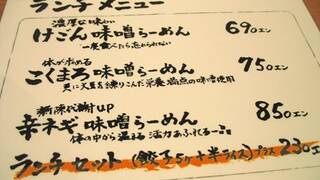 ランチメニュー
濃厚な味わい
けごん味噌らーめん 690エン
一度食べたら忘れられない
体が求める
こくまろ味噌らーめん 750エン
更に大豆を練りこんだ栄養満点の味噌使用
新陳代謝UP
辛ネギ味噌らーめん 850エン
体の中から温まる 活力あふれる
ランチセット(餃子5ケ+半ライス)プラス 230エ